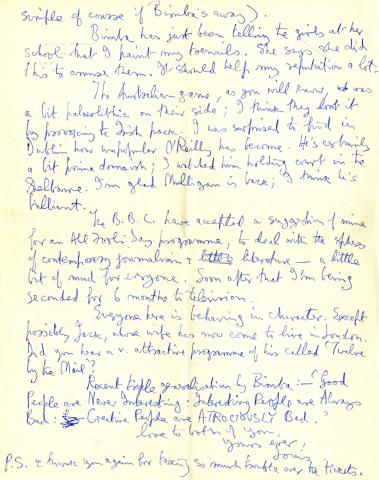 simple of course if Bimba's away).
Bimba has just been telling the girls at her
school that I paint my toenails. She says she did
this to amuse them. It should help my reputation a lot.
The Australian game, as you will know, was
a bit paleolithic on their side; I think they lost it
by provoking the Irish pack. I was surprised to find in
Dublin how unpopular O'Reilly has become. He's certainly
a bit prima donnaish; I watched him holding court in the
Shelbourne. I'm glad Mulligan is back; I think he's
brilliant.
The B.B.C. have accepted a suggestion of mine
for an All Fools' Day programme, to deal with the
of contemporary journalism & literature — a little
bit of mud for everyone. Soon after that I'm being
seconded for 6 months to television.
Everyone here is behaving in character. Except
possibly Jack, whose wife has now come to live in London.
Did you hear a v. attractive programme of his called 'Twelve
by the Mail'?
Recent triple generalisation by Bimba:— "Good
People are Never Interesting: Interesting People are Always
Bad: Creative People are ATROCIOUSLY Bad."
love to both of you
yours ever,
Louis
P.S. & thank you again for taking so much trouble over the tickets.